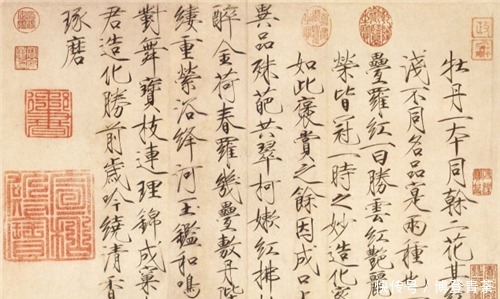 牡丹一本同榦二花其紅
淺不同名品實兩種也
疊羅紅一曰勝雲紅艷麗
榮皆冠一時之妙造化密
如此褒賞之餘因成口占
異品殊葩共翠柯嫩紅拂
醉金荷春羅幾疊敷丹陛
縷重縈浴絳河玉鑑和鳴
對舞寶枝連理錦成窠
君造化勝前歲吟繞清香
琢磨